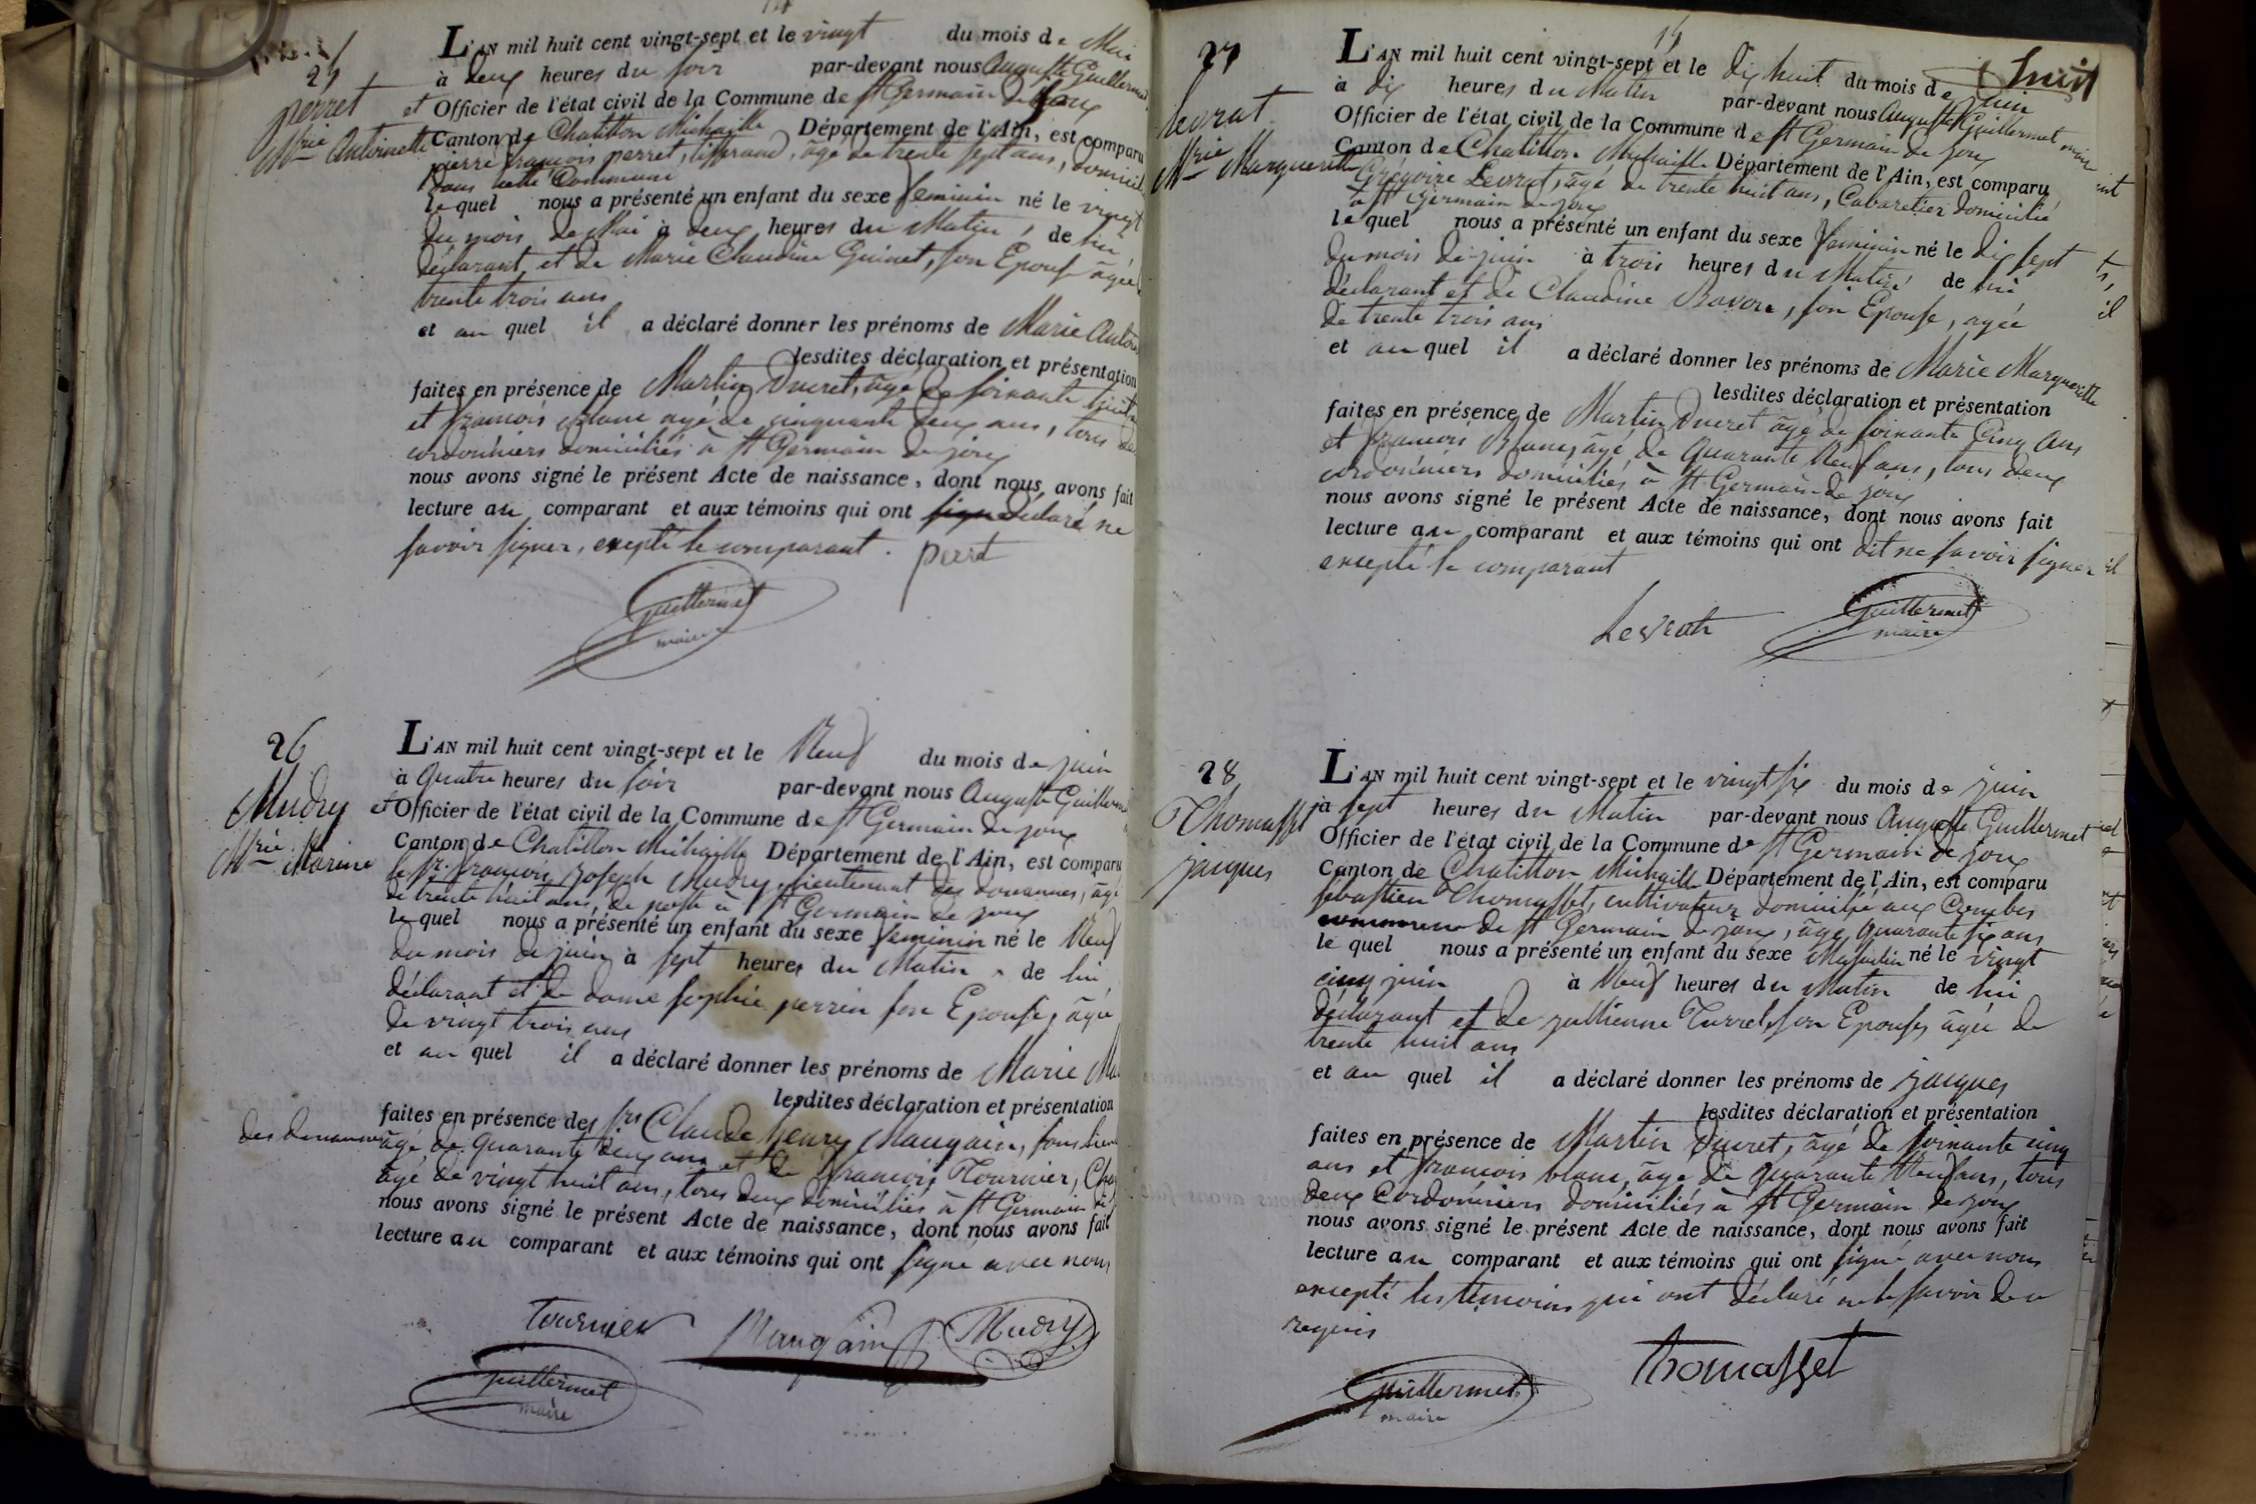 25
perret
Mrie Antoinette
L'AN mil huit cent vingt-sept et le vingt du mois de Mai
à deux heures du soir par-devant nous Auguste Guillermet
et Officier de l'état civil de la Commune de St Germain de joux
Canton de Chatillon Michaille Département de l'Ain, est comparu
pierre françois perret, tisserand, âgé de trente sept ans, domicilié
dans cette Commune
lequel nous a présenté un enfant du sexe feminin né le vingt
du mois de Mai à deux heures du Matin, de lui
déclarant et de Marie Claudine Guinet, son Epouse âgée
trente trois ans
et au quel il a déclaré donner les prénoms de Marie Antoi
lesdites déclaration et présentation
faites en présence de Martin Ducret, âgé de soixante
et françois Blanc âgé de cinquante deux ans, tous
cordonniers domiciliés à St Germain de joux
nous avons signé le présent Acte de naissance, dont nous avons fait
lecture au comparant et aux témoins qui ont déclaré ne
savoir signer, excepté le comparant. perret
Guillermet
maire
26
Mudry
Mrie Marine
L'AN mil huit cent vingt-sept et le Neuf du mois de juin
à quatre heures du soir par-devant nous Auguste Guillerm
et Officier de l'état civil de la Commune de St Germain de joux
Canton de Chatillon Michaille Département de l'Ain, est comparu
le sr. françois joseph Mudry, lieutenant des douannes, âgé
de trente huit ans, de poste à St Germain de joux
lequel nous a présenté un enfant du sexe feminin né le Neuf
du mois de juin à sept heures du Matin de lui
déclarant et de dame sophie perrin son Epouse, âgée
de vingt trois ans
et au quel il a déclaré donner les prénoms de Marie Ma
lesdites déclaration et présentation
faites en présence des srs Claude henry Maugain, sous lieu
des douannes âgé de quarante deux ans et de françois Tournier,
âgé de vingt huit ans, tous deux domiciliés à St Germain de
nous avons signé le présent Acte de naissance, dont nous avons fait
lecture au comparant et aux témoins qui ont signé avec nous
Tournier Maugain Mudry
Guillermet
maire
14
huit
27
Levrat
Mrie Marguerette
L'AN mil huit cent vingt-sept et le dix huit du mois de juin
à dix heures du Matin par-devant nous Auguste Guillermet maire
Officier de l'état civil de la Commune de St Germain de joux
Canton de Chatillon Michaille Département de l'Ain, est comparu
Grégoire Levrat, âgé de trente huit ans, Cabaretier domicilié
à St Germain de joux
lequel nous a présenté un enfant du sexe feminin né le dix sept
du mois de juin à trois heures du Matin de lui
déclarant et de Claudine Ravore, son Epouse, agée
de trente trois ans
et au quel il a déclaré donner les prénoms de Marie Marguerette
lesdites déclaration et présentation
faites en présence de Martin Ducret âgé de soixante Cinq Ans
et françois Blanc, âgé de quarante Neuf ans, tous deux
cordonniers domiciliés à St Germain de joux
nous avons signé le présent Acte de naissance, dont nous avons fait
lecture au comparant et aux témoins qui ont dit ne savoir signer
excepté le comparant
Levrat Guillermet
maire
28
Thomasset
jacques
L'AN mil huit cent vingt-sept et le vingt six du mois de juin
à sept heures du Matin par-devant nous Auguste Guillermet
Officier de l'état civil de la Commune de St Germain de joux
Canton de Chatillon Michaille Département de l'Ain, est comparu
sebastien Thomasset, cultivateur domicilié aux Combes
commune de St Germain de joux, âgé, quarante six ans
lequel nous a présenté un enfant du sexe Masculin né le vingt
cinq juin à Neuf heures du Matin de lui
déclarant et de jullienne Turrel, son Epouse, âgée de
trente huit ans
et au quel il a déclaré donner les prénoms de jacques
lesdites déclaration et présentation
faites en présence de Martin Ducret, âgé de soixante cinq
ans et francois blanc, âgé de quarante Neuf ans, tous
deux Cordonniers domiciliés à St Germain de joux
nous avons signé le présent Acte de naissance, dont nous avons fait
lecture au comparant et aux témoins qui ont signé avec nous
excepté les témoins qui ont déclaré ne le savoir de ce
requis
Guillermet
maire
Thomasset